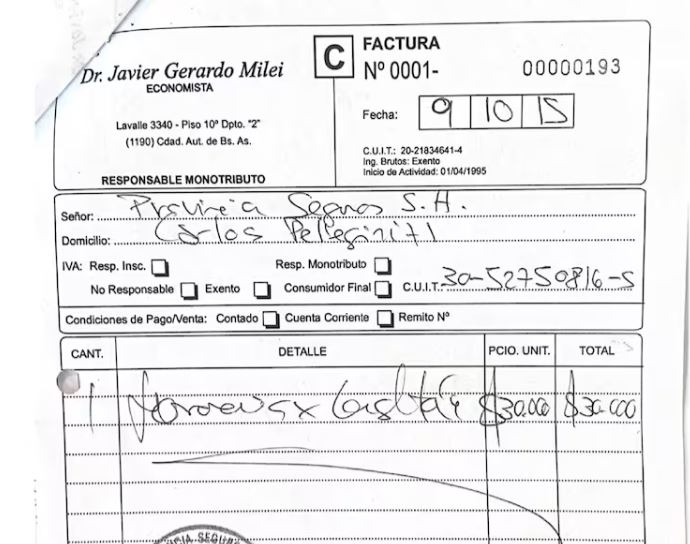 Dr. Javier Gerardo Milei
ECONOMISTA
Lavalle 3340 - Piso 10º Dpto. "2"
(1190) Cdad. Aut. de Bs. As.
RESPONSABLE MONOTRIBUTO
C
FACTURA
Nº 0001- 00000193
Fecha: 9 10 15
C.U.I.T.: 20-21834641-4
Ing. Brutos: Exento
Inicio de Actividad: 01/04/1995
Señor: Provincia Seguros S.A.
Domicilio: Carlos Pellegrini 71
IVA: Resp. Insc. Resp. Monotributo
No Responsable Exento Consumidor Final C.U.I.T. 30-52750816-5
Condiciones de Pago/Venta: Contado Cuenta Corriente Remito Nº
CANT. DETALLE PCIO. UNIT. TOTAL
1 $30.000 $30.000